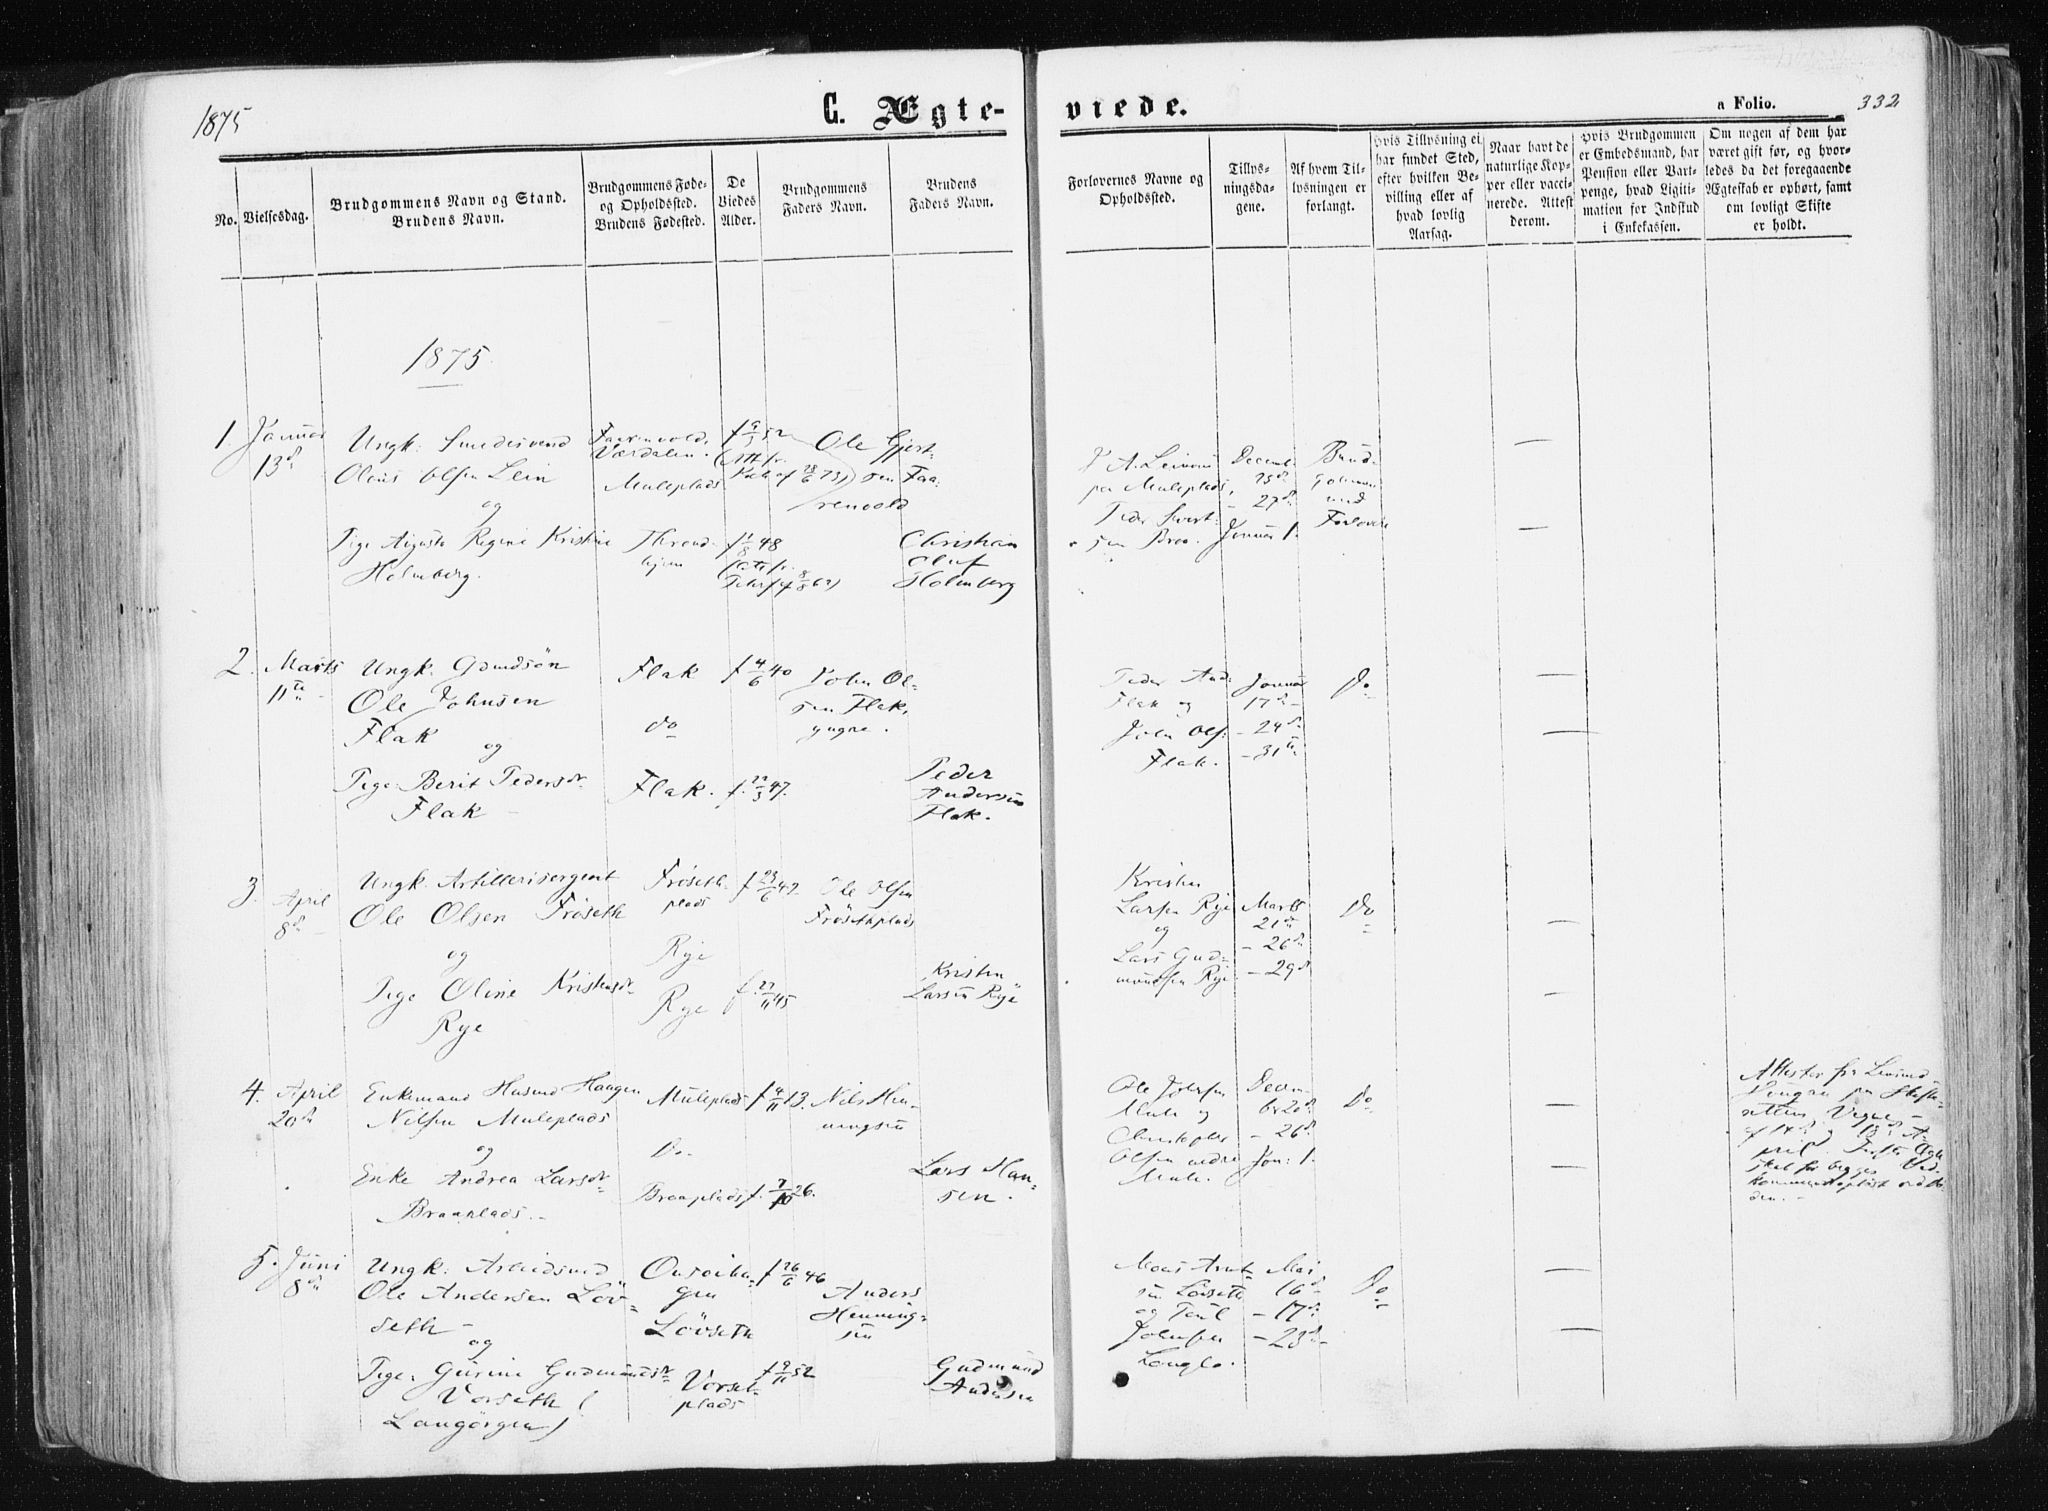 1875
C. Ægte-
viede.
a Folio.
332
No.
Vielsesdag.
Brudgommens Navn og Stand.
Brudens Navn.
Brudgommens Føde-
og Opholdssted.
Brudens Fødested.
De
Viedes
Alder.
Brudgommens
Faders Navn.
Brudens
Faders Navn.
Forlovernes Navne og
Opholdssted.
Tillys-
ningsda-
gene.
Af hvem Til-
lysningen er
forlangt.
Hvis Tillysning ei
har fundet Sted,
efter hvilken Be-
villing eller af
hvad lovlig
Aarsag.
Naar havt de
naturlige Kop-
per eller vacci-
nerede. Attest
derom.
Hvis Brudgommen
er Embedsmand, har
Pension eller Vart-
penge, hvad Ligiti-
mation for Indskud
i Enkekassen.
Om nogen af dem har
været gift før, og hvor-
ledes da det foregaaende
Ægteskab er ophørt, samt
om lovligt Skifte
er holdt.
1875.
1. Januar
13d
Ungk: Smedesvend
Olaus Olsen Lein
og
Pige Augusta Regine Kristine
Holmberg.
Faarenvold,
Værdalen.
Muleplads
Thrond-
hjem
f 9/3 52
f 1/8 48
Ole Gjert-
sen Faa-
renvold
Christian
Oluf
Holmberg
Muleplads,
Peder Sivert-
sen Braa.
Decemb:
25d
- 27d
Januar 1.
Brud-
gommen
med
Forlovere
2. Marts
11te
Ungk. Gaardsøn
Ole Johnsen
Flak
og
Pige: Berit Pedersdr
Flak
Flak
do
Flak.
f 4/6 40
f. 22/3 47.
John Ol-
sen Flak,
yngre.
Peder
Andersen
Flak.
Peder And:
Flak og
John Ols:
Flak.
Januar
17d
- 24d
- 31te
Do
3. April
8d
Ungk. Artillerisergent
Ole Olsen Frøseth
og
Pige Oline Kristensdr
Rye
Frøseth-
plads
Rye
Rye
f 23/6 42
f. 27/11 45
Ole Olsen
Frøsethplads
Kristen
Larsen Rye
Kristen
Larsen Rye
og
Lars Gud-
mundsen Rye
Marts
21d
- 26d
- 29d
Do
4. April
20d
Enkemand Husmd Haagen
Nilsen Muleplads
og
Enke Andrea Larsdr
Braaplads.
Muleplads
Do
Braaplads
f 4/11 13.
f. 7/10 26.
Nils Hen-
ningsen
Lars Han-
sen.
Ole Johnsen
Mule og
Christopher
Olsen nedre
Mule.
Decem-
br 20d
- 26d
Jan: 1.
Do
5. Juni
8d
Ungk: Arbeidsmd
Ole Andersen Løv-
seth
og
Pige: Gurine Gudmundsdr
Vorseth (
Langørgen)
Løvseth
Vorset-
plads
f 26/6 46
f 9/11 52
Anders
Henning-
sen
Gudmund
Andersen
Løvseth
og Paul
Johnsen
Langlo.
Mai
16d
- 17d
- 23d
Do